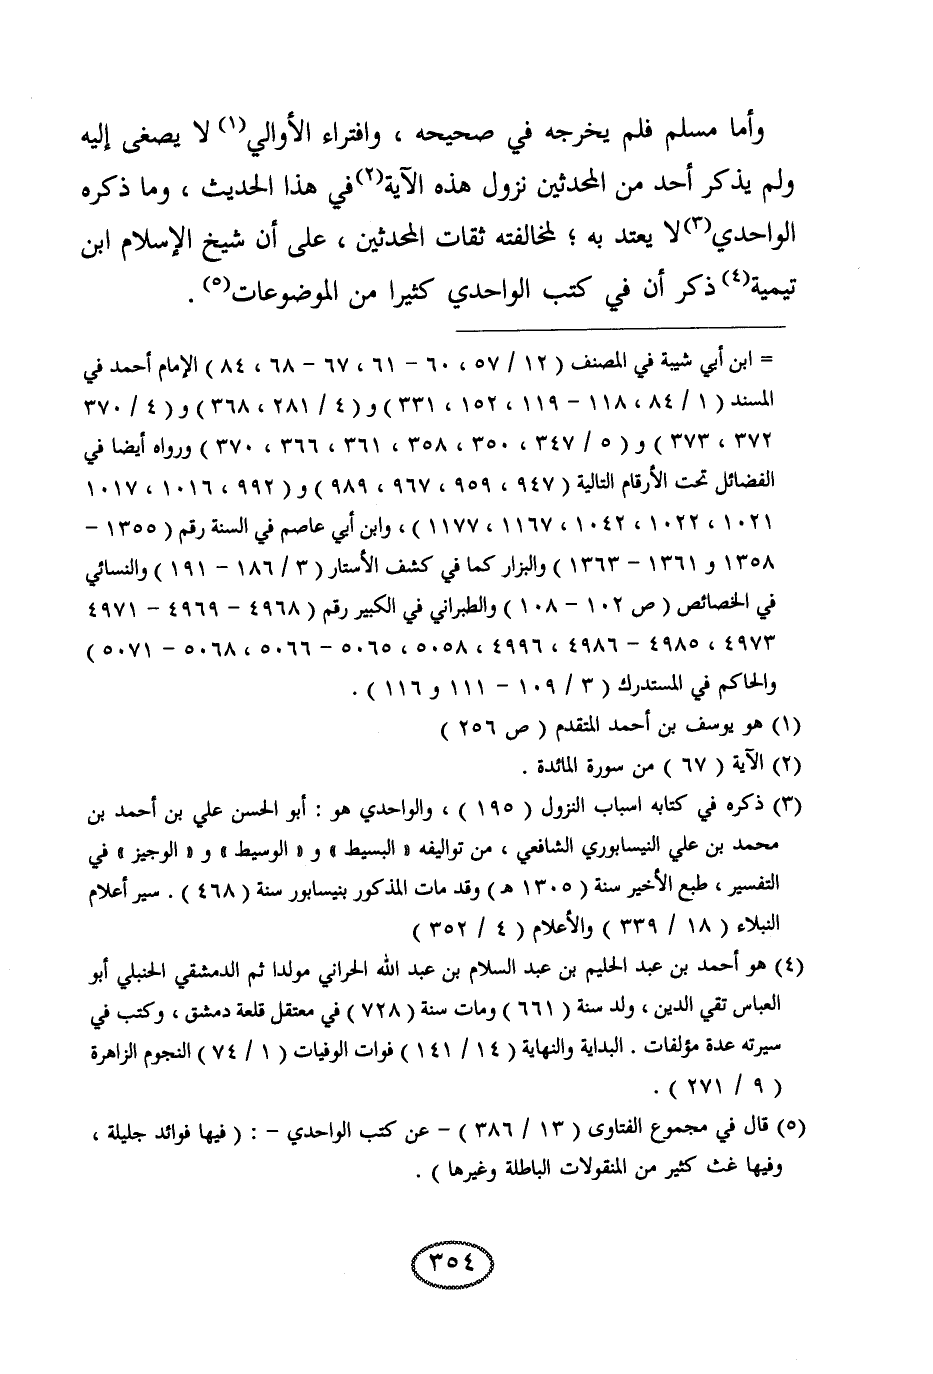 وأما مسلم فلم يخرجه في صحيحه ، وافتراء الأوالي(١) لا يصغى إليه
ولم يذكر أحد من المحدثين نزول هذه الآية(٢) في هذا الحديث ، وما ذكره
الواحدي(٣) لا يعتد به ؛ لمخالفته ثقات المحدثين ، على أن شيخ الإسلام ابن
تيمية(٤) ذكر أن في كتب الواحدي كثيرا من الموضوعات(٥) .
= ابن أبي شيبة في المصنف ( ١٢ / ٥٧ ، ٦٠ – ٦١ ، ٦٧ – ٦٨ ، ٨٤ ) الإمام أحمد في
المسند ( ١ / ٨٤ ، ١١٨ – ١١٩ ، ١٥٢ ، ٣٣١ ) و ( ٤ / ٢٨١ ، ٣٦٨ ) و ( ٤ / ٣٧٠
٣٧٢ ، ٣٧٣ ) و ( ٥ / ٣٤٧ ، ٣٥٠ ، ٣٥٨ ، ٣٦١ ، ٣٦٦ ، ٣٧٠ ) ورواه أيضا في
الفضائل تحت الأرقام التالية ( ٩٤٧ ، ٩٥٩ ، ٩٦٧ ، ٩٨٩ ) و ( ٩٩٢ ، ١٠١٦ ، ١٠١٧
١٠٢١ ، ١٠٢٢ ، ١٠٤٢ ، ١١٦٧ ، ١١٧٧ ) ، وابن أبي عاصم في السنة رقم ( ١٣٥٥ –
١٣٥٨ و ١٣٦١ – ١٣٦٣ ) والبزار كما في كشف الأستار ( ٣ / ١٨٦ – ١٩١ ) والنسائي
في الخصائص ( ص ١٠٢ – ١٠٨ ) والطبراني في الكبير رقم ( ٤٩٦٨ – ٤٩٦٩ – ٤٩٧١
٤٩٧٣ ، ٤٩٨٥ – ٤٩٨٦ ، ٤٩٩٦ ، ٥٠٥٨ ، ٥٠٦٥ – ٥٠٦٦ ، ٥٠٦٨ – ٥٠٧١ )
والحاكم في المستدرك ( ٣ / ١٠٩ – ١١١ و ١١٦ ) .
(١) هو يوسف بن أحمد المتقدم ( ص ٢٥٦ )
(٢) الآية ( ٦٧ ) من سورة المائدة .
(٣) ذكره في كتابه اسباب النزول ( ١٩٥ ) ، والواحدي هو : أبو الحسن علي بن أحمد بن
محمد بن علي النيسابوري الشافعي ، من تواليفه « البسيط » و « الوسيط » و « الوجيز » في
التفسير ، طبع الأخير سنة ( ١٣٠٥ هـ ) وقد مات المذكور بنيسابور سنة ( ٤٦٨ ) . سير أعلام
النبلاء ( ١٨ / ٣٣٩ ) والأعلام ( ٤ / ٣٥٢ )
(٤) هو أحمد بن عبد الحليم بن عبد السلام بن عبد الله الحراني مولدا ثم الدمشقي الحنبلي أبو
العباس تقي الدين ، ولد سنة ( ٦٦١ ) ومات سنة ( ٧٢٨ ) في معتقل قلعة دمشق ، وكتب في
سيرته عدة مؤلفات . البداية والنهاية ( ١٤ / ١٤١ ) فوات الوفيات ( ١ / ٧٤ ) النجوم الزاهرة
( ٩ / ٢٧١ ) .
(٥) قال في مجموع الفتاوى ( ١٣ / ٣٨٦ ) – عن كتب الواحدي – : ( فيها فوائد جليلة ،
وفيها غث كثير من المنقولات الباطلة وغيرها ) .
٣٥٤